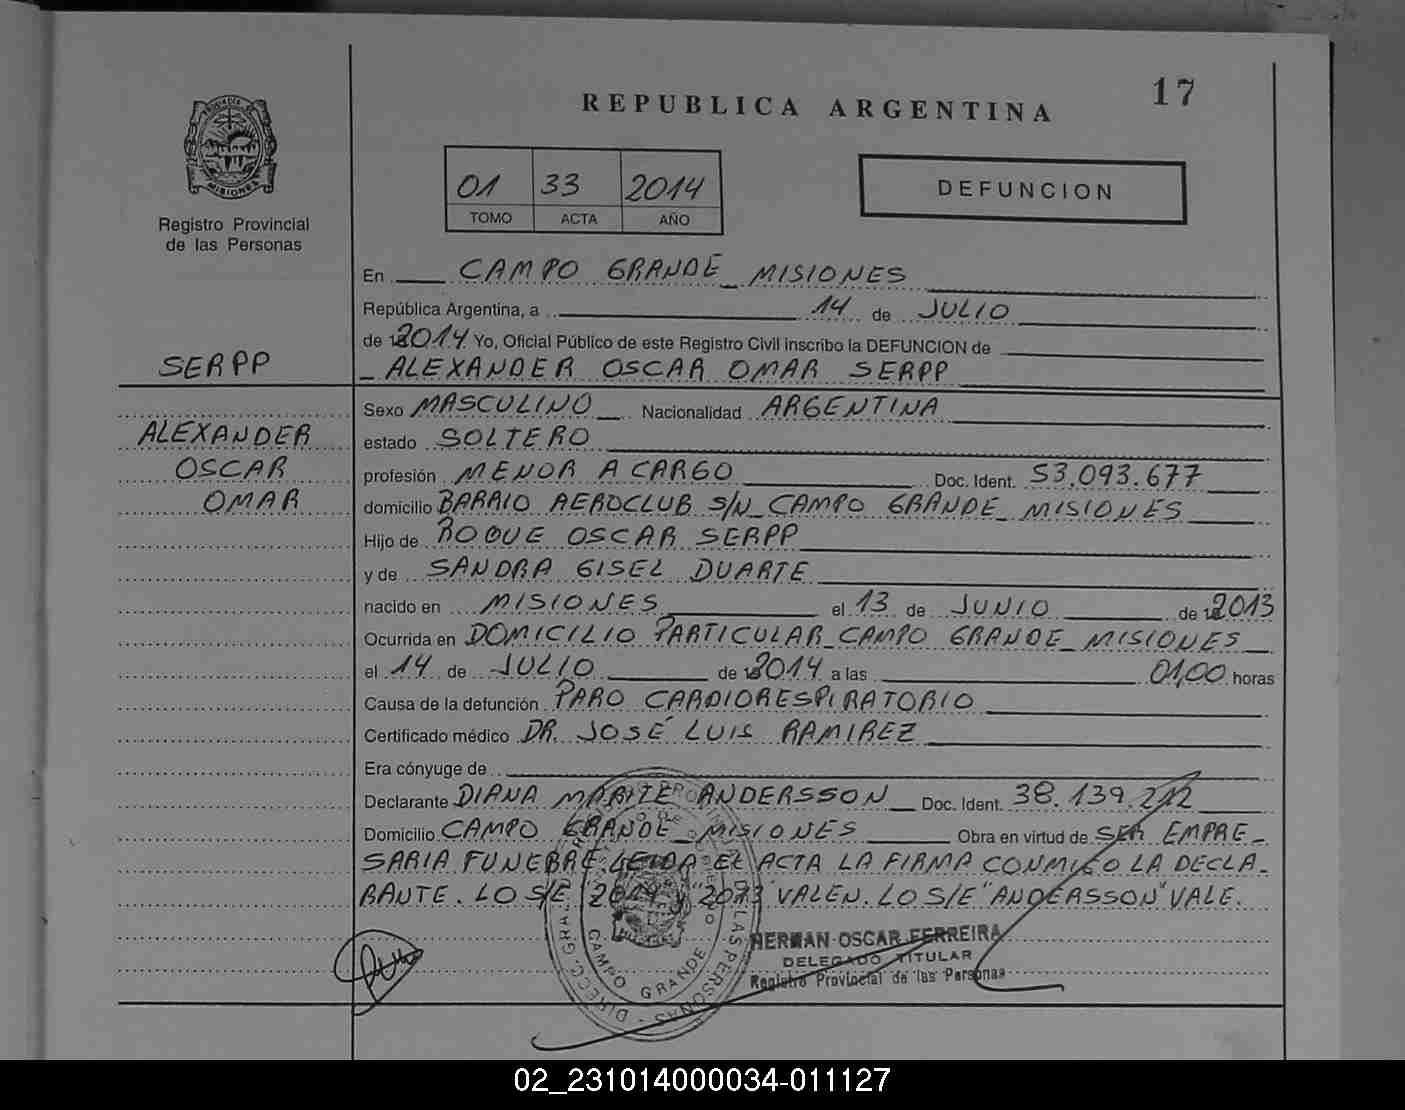 17
REPUBLICA ARGENTINA
MISIONES
Registro Provincial
de las Personas
01 33 2014
TOMO ACTA AÑO
DEFUNCION
En CAMPO GRANDE_MISIONES
República Argentina, a 14 de JULIO
de 2014 Yo, Oficial Público de este Registro Civil inscribo la DEFUNCION de
SERPP
ALEXANDER OSCAR OMAR SERPP
Sexo MASCULINO Nacionalidad ARGENTINA
ALEXANDER
estado SOLTERO
OSCAR
profesión MENOR A CARGO Doc. Ident. 53.093.677
OMAR
domicilio BARRIO AEROCLUB S/N_CAMPO GRANDE_MISIONES
Hijo de ROQUE OSCAR SERPP
y de SANDRA GISEL DUARTE
nacido en MISIONES el 13 de JUNIO de 2013
Ocurrida en DOMICILIO PARTICULAR_CAMPO GRANDE_MISIONES
el 14 de JULIO de 2014 a las 01,00 horas
Causa de la defunción PARO CARDIORESPIRATORIO
Certificado médico DR. JOSÉ LUIS RAMIREZ
Era cónyuge de
Declarante DIANA MARITE ANDERSSON Doc. Ident. 38.139.212
Domicilio CAMPO GRANDE_MISIONES Obra en virtud de SER EMPRE-
SARIA FUNEBRE. LEIDA EL ACTA LA FIRMA CONMIGO LA DECLA-
RANTE. LO S/E "2014 y "2013 VALEN. LO S/E "ANDERSSON" VALE.
CAMPO GRANDE
HERNAN OSCAR FERREIRA
DELEGADO TITULAR
Registro Provincial de las Personas
02_231014000034-011127